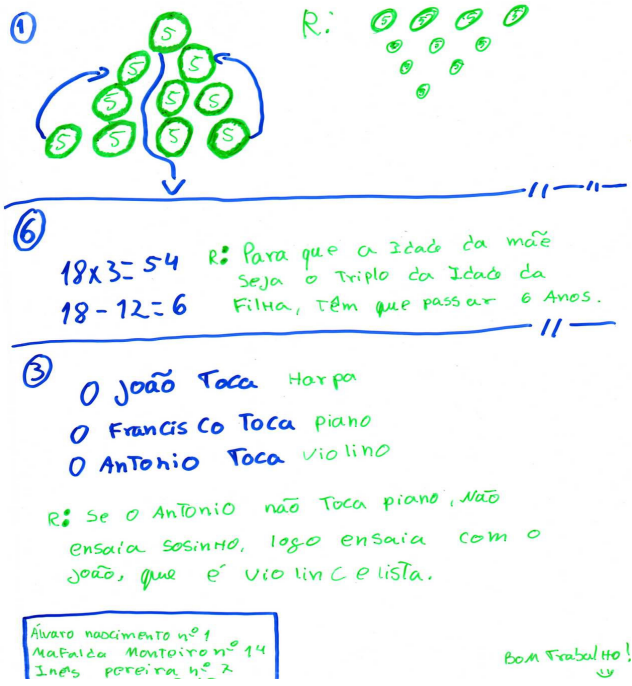 1
R:
5 5 5 5
5
5 5 5
5 5
5 5
5 5 5
5
5 5 5 5
6
18x3=54
R: Para que a Idade da mãe
seja o Triplo da Idade da
18-12=6
Filha, Têm que passar 6 Anos.
3
O João Toca Harpa
O Francisco Toca piano
O Antonio Toca violino
R: Se o Antonio não Toca piano, Não
ensaia sosinho, logo ensaia com o
João, que é violincelista.
Álvaro nascimento nº 1
Mafalda Monteiro nº 14
Inês pereira nº
Bom Trabalho!